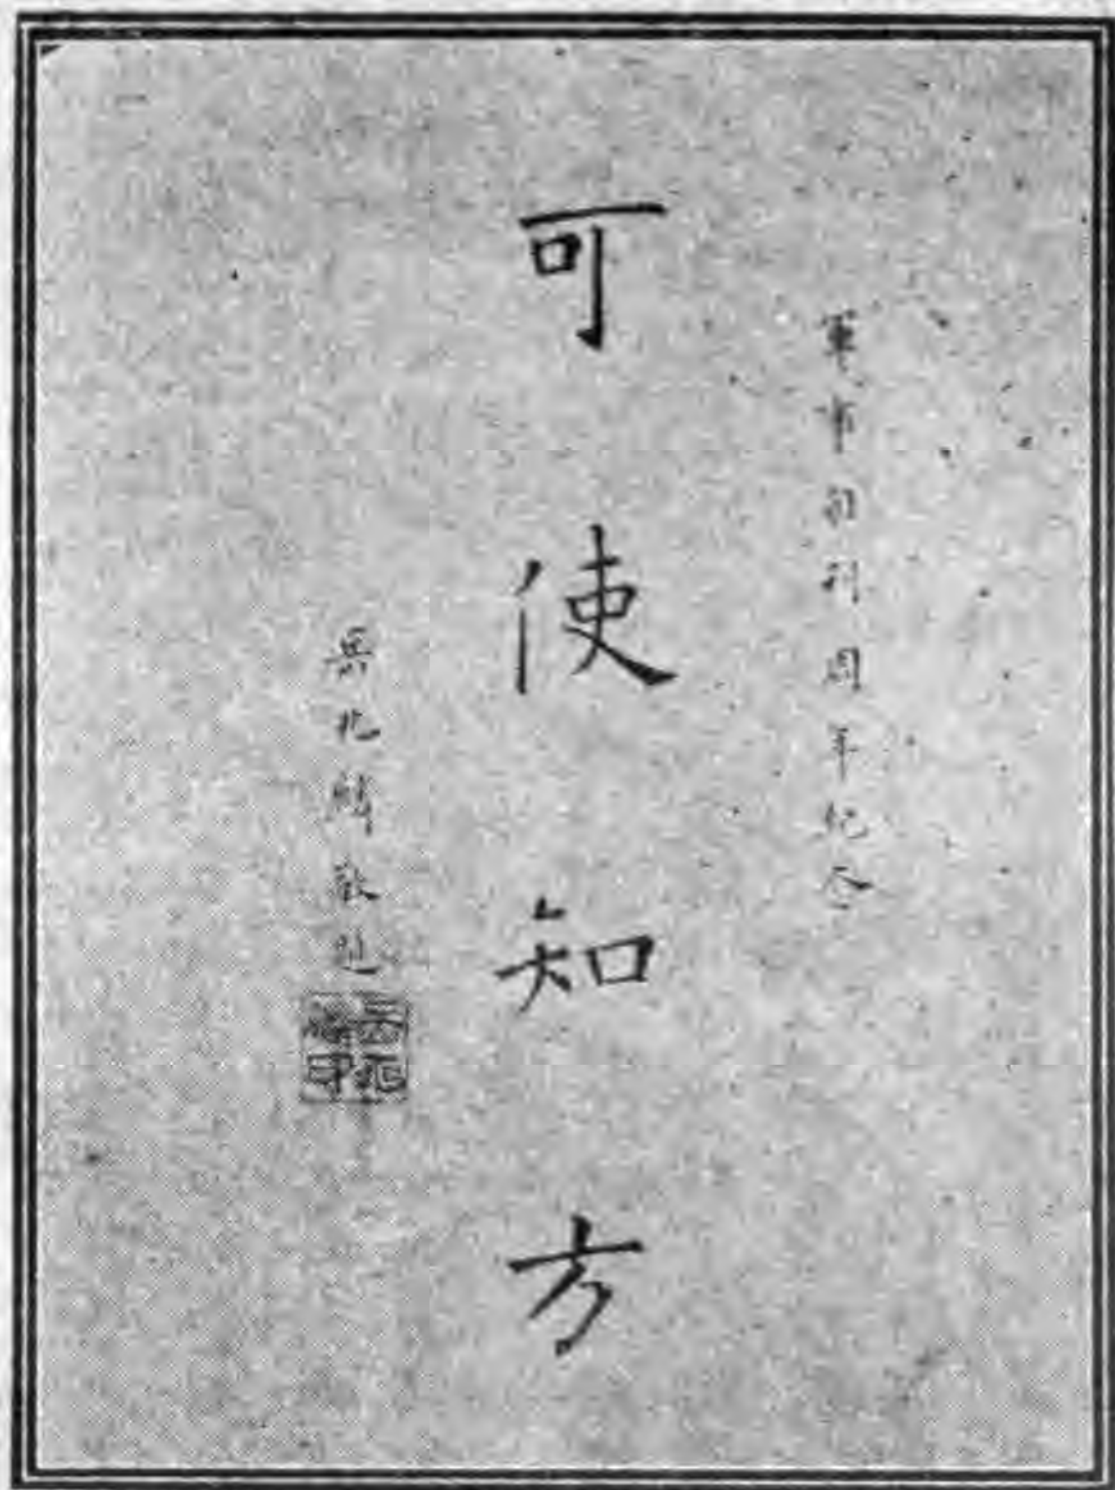 軍事旬刊周年紀念
可使知方
岳兆麟敬題